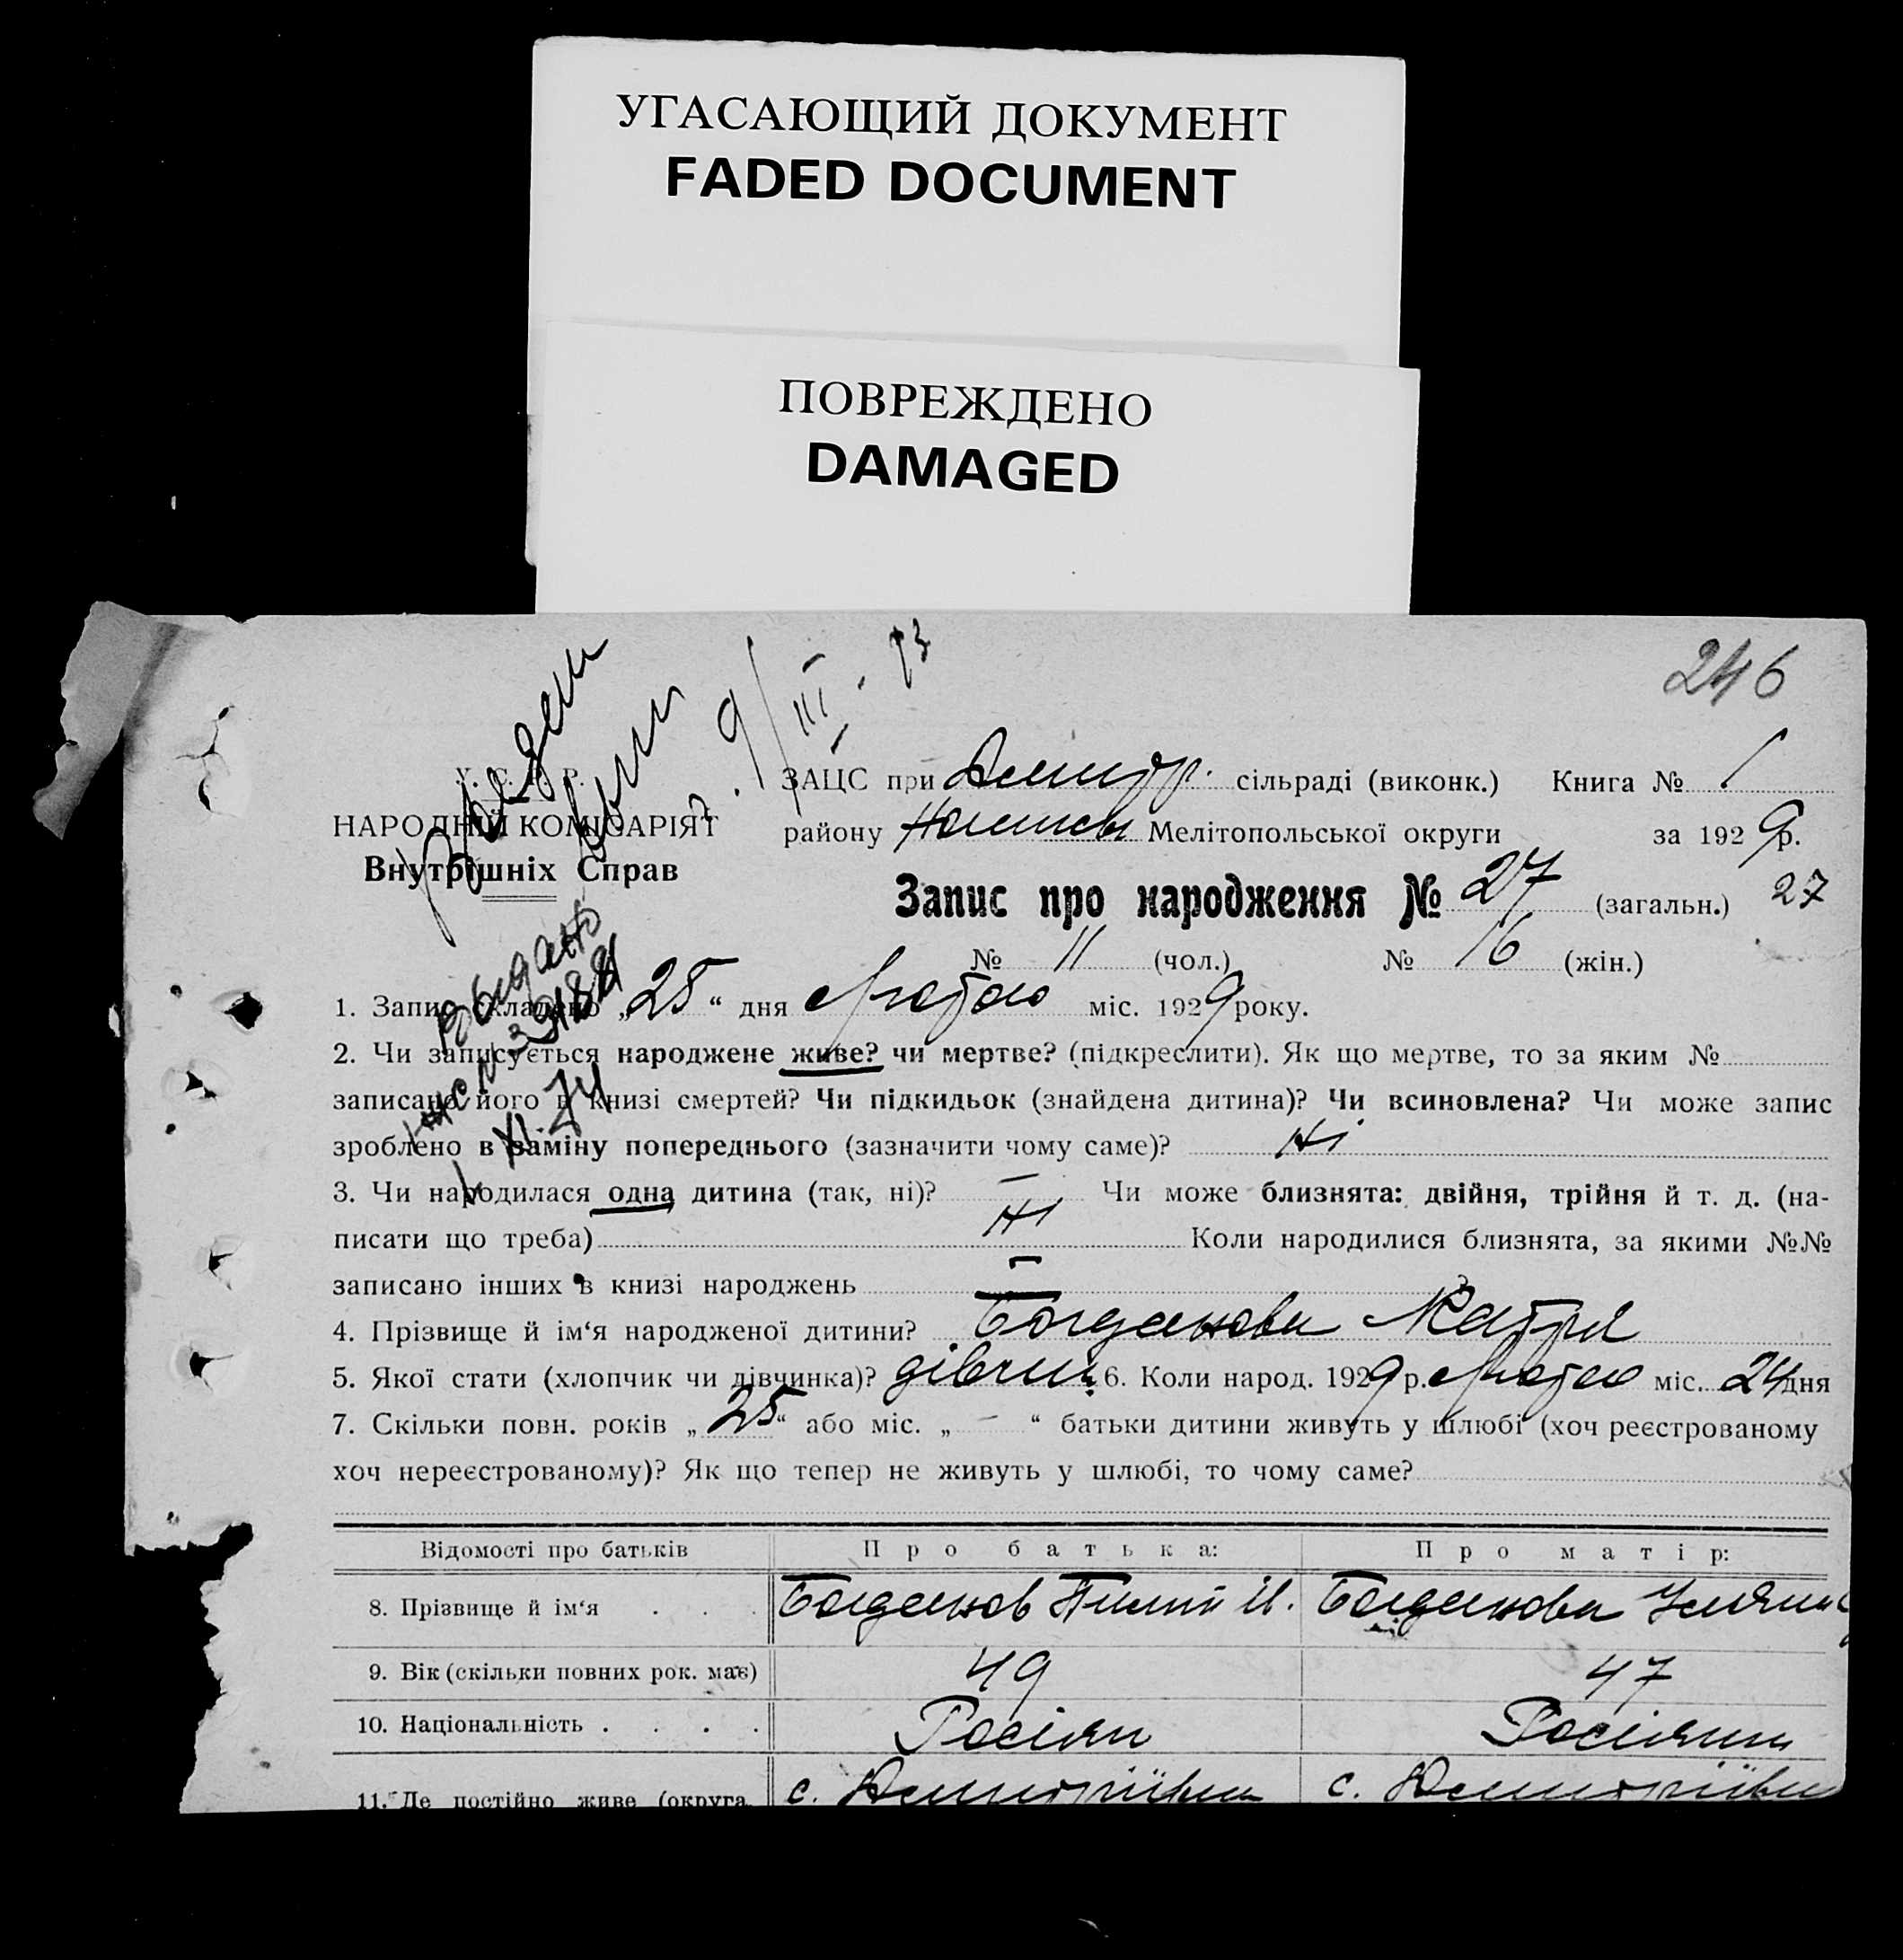 УГАСАЮЩИЙ ДОКУМЕНТ
FADED DOCUMENT
ПОВРЕЖДЕНО
DAMAGED
246
9/III - 73
У. С. Р. Р.
НАРОДНІЙ КОМІСАРІЯТ
Внутрішніх Справ
ЗАЦС при Дмитр. сільраді (виконк.) Книга № 1
району Мелітопольської округи за 1929 р.
Запис про народження № 27 (загальн.) 27
№ 11 (чол.) № 16 (жін.)
Выдано
1. Запис складено „25“ дня Лютого міс. 1929 року.
2. Чи записується народжене живе? чи мертве? (підкреслити). Як що мертве, то за яким №
записано його в книзі смертей? Чи підкидьок (знайдена дитина)? Чи всиновлена? Чи може запис
зроблено в заміну попереднього (зазначити чому саме)? Ні
3. Чи народилася одна дитина (так, ні)? — Чи може близнята: двійня, трійня й т. д. (на-
писати що треба) Ні Коли народилися близнята, за якими №№
записано інших в книзі народжень —
4. Прізвище й ім‘я народженої дитини? Богданова
5. Якої стати (хлопчик чи дівчинка)? дівчин. 6. Коли народ. 1929 р. Лютого міс. 24 дня
7. Скільки повн. років „25“ або міс. „ — “ батьки дитини живуть у шлюбі (хоч реєстрованому
хоч нереєстрованому)? Як що тепер не живуть у шлюбі, то чому саме?
Відомості про батьків Про батька: Про матір:
8. Прізвище й ім‘я . . . Богданов И. Богданова
9. Вік (скільки повних рок. має) 49 47
10. Національність . . . . Росіян Росіянка
11. Де постійно живе (округа, с. Дмитріївка с. Дмитріївка